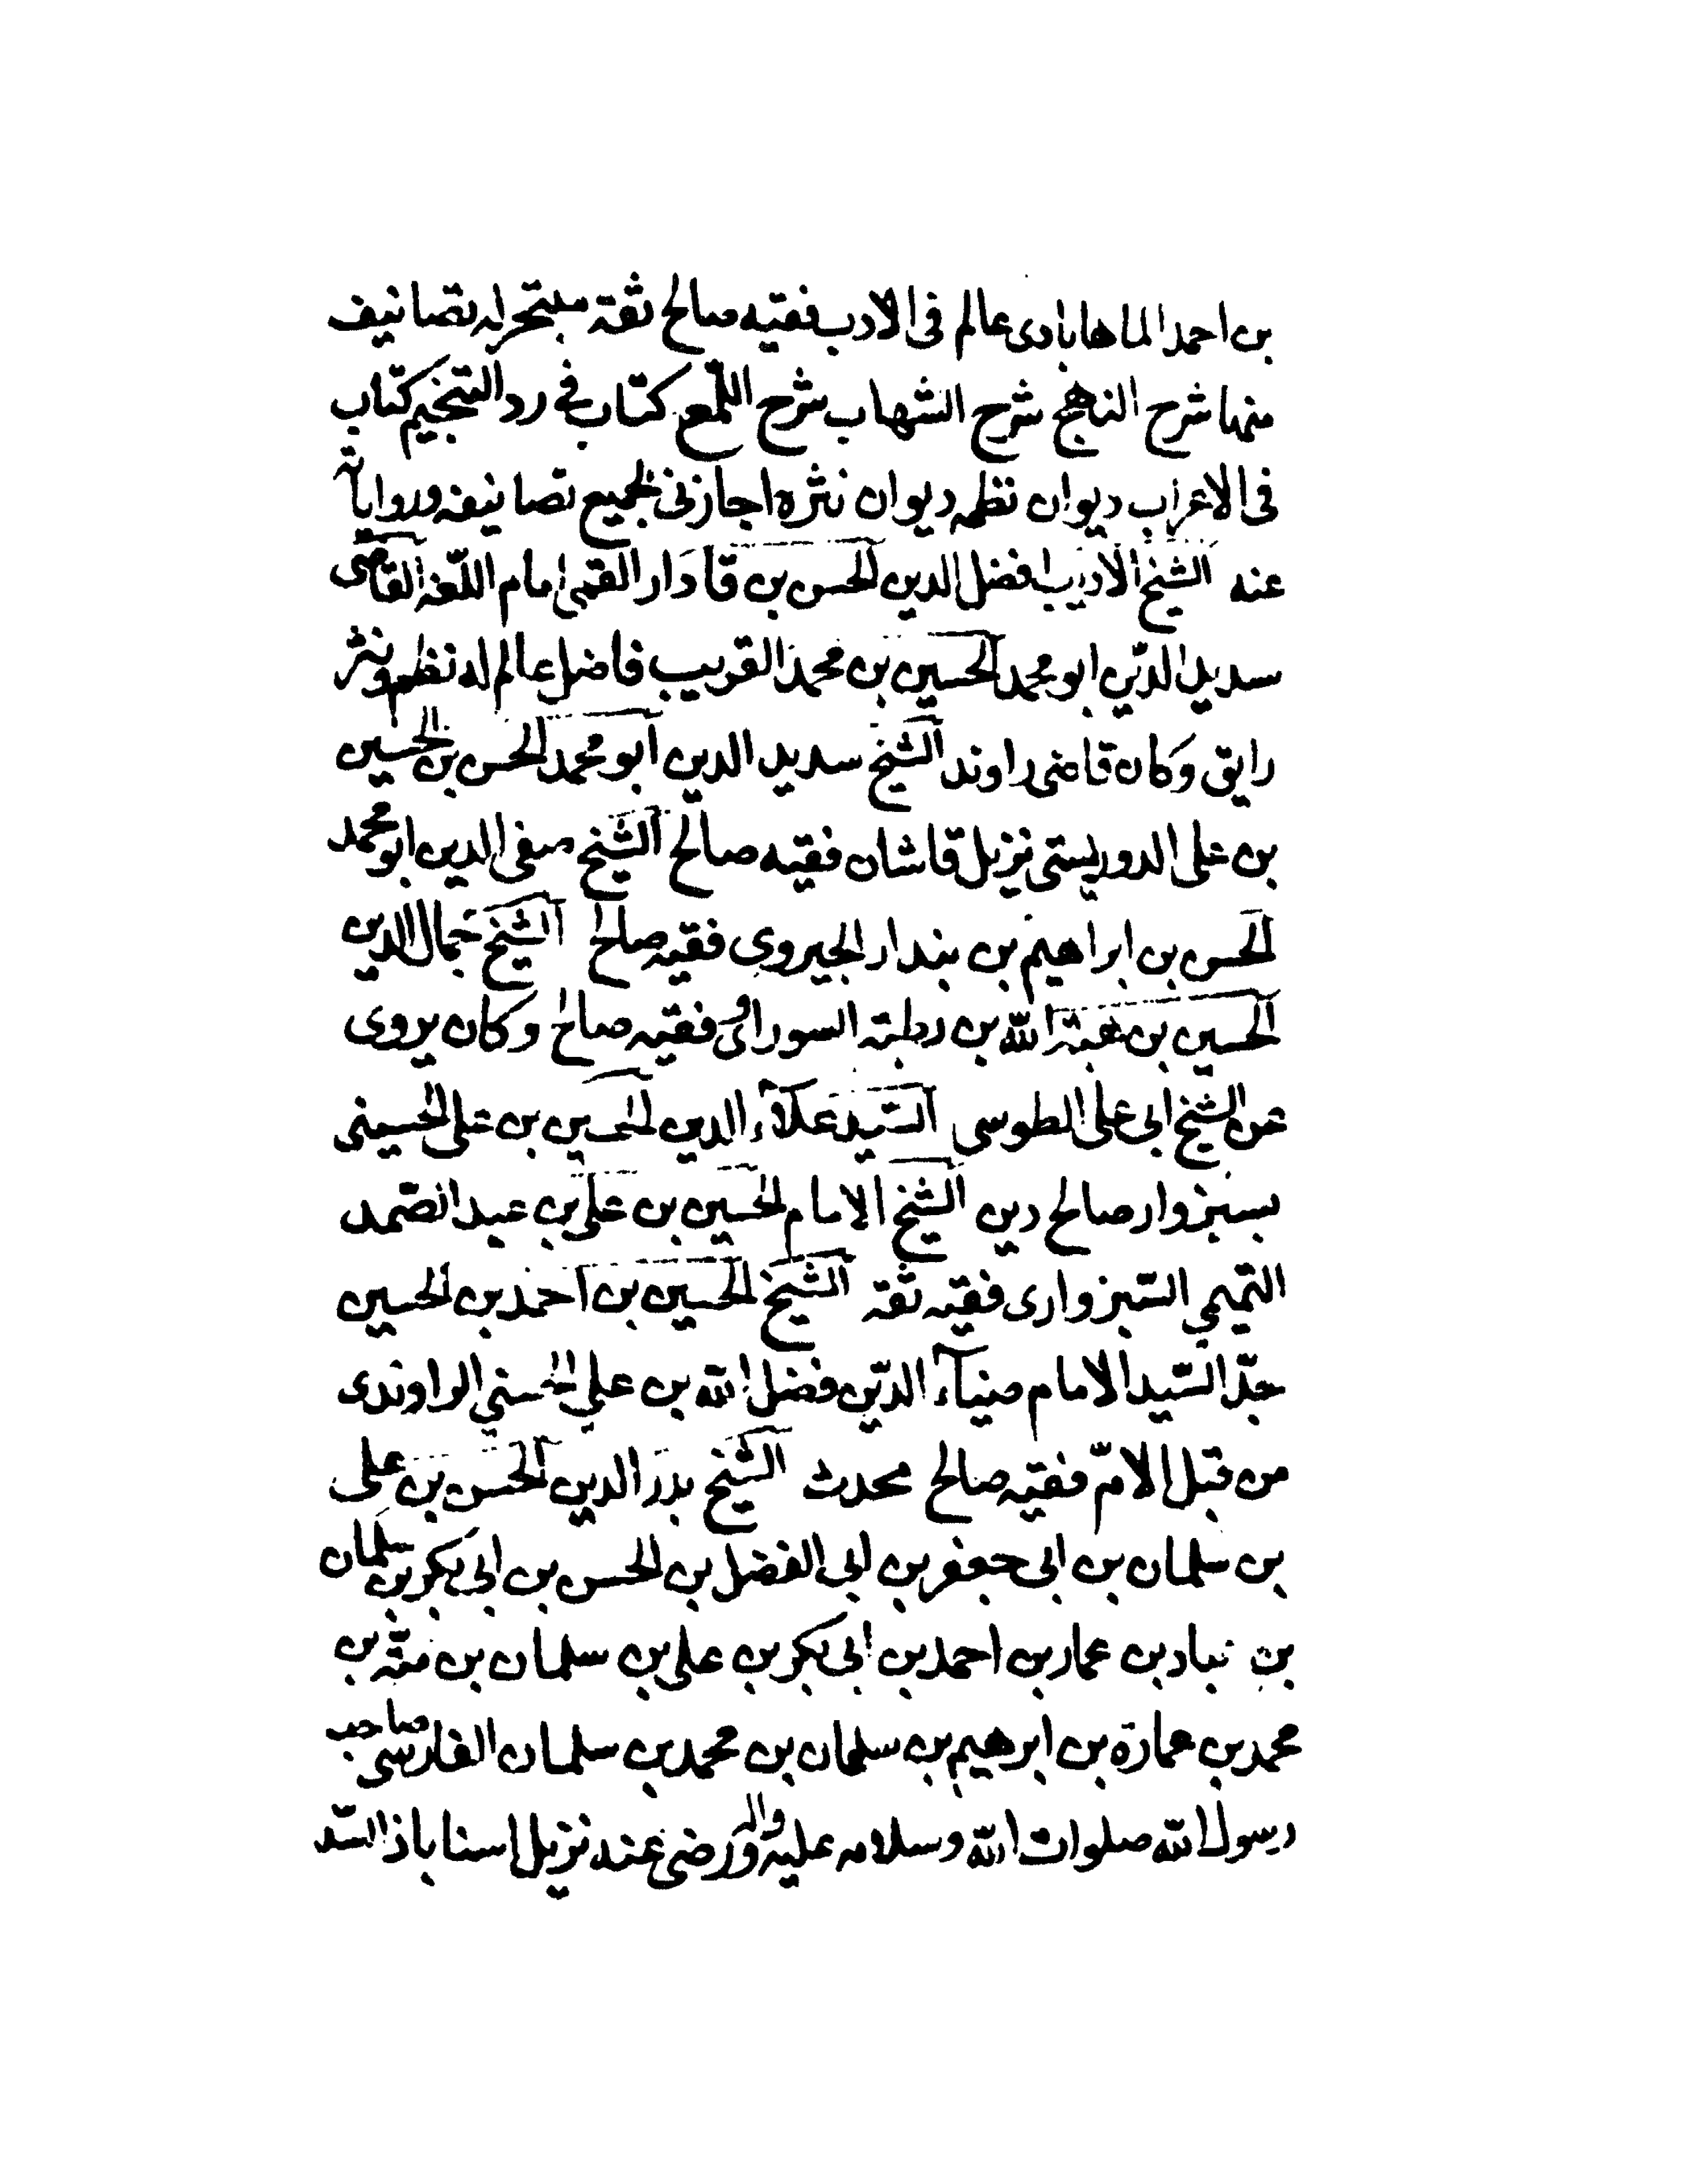 بن احمد الماهابادى عالم فى الادب فقيه صالح ثقة متبحر له تصانيف
منها شرح النهج شرح الشهاب شرح اللّمع كتاب فى رد التنجيم كتاب
فى الاعراب ديوان نظمه ديوان نثره اجازنى بجميع تصانيفه ورواياته
عنه الشيخ الاديب افضل الدين الحسن بن قادار القمى امام اللّغة القاضى
سديد الدّين ابو محمد الحسين بن محمد القريب فاضل عالم له نظم ونثر
رايق وكان قاضى راوند الشيخ سديد الدين ابو محمد الحسن بن الحسين
بن على الدوريستى نزيل قاشان فقيه صالح الشيخ صفى الدين ابو محمد
الحسن بن ابراهيم بن بندار الجيروى فقيه صالح الشيخ جمال الدين
الحسين بن هبة الله بن رطبة السوراوى فقيه صالح وكان يروى
عن الشيخ ابى على الطوسى السّيد علاء الدين الحسين بن على الحسينى
بسبزوار صالح دين الشيخ الامام الحسين بن على بن عبد الصّمد
التميمى السّبزوارى فقيه ثقة الشيخ الحسين بن احمد بن الحسين
جدّ السّيد الامام ضياء الدّين فضل الله بن على الحسنى الراوندى
من قبل الامّ فقيه صالح محدث الشيخ بدر الدين الحسن بن على
بن سلمان بن ابى جعفر بن ابى الفضل بن الحسن بن ابى بكر بن سلمان
بن عباد بن عمار بن احمد بن ابى بكر بن على بن سلمان بن منبّه بن
محمد بن عمارة بن ابرهيم بن سلمان بن محمد بن سلمان الفارسى صاحب
رسول الله صلوات الله وسلامه عليه واله ورضى عنه نزيل اسناباذ السّد